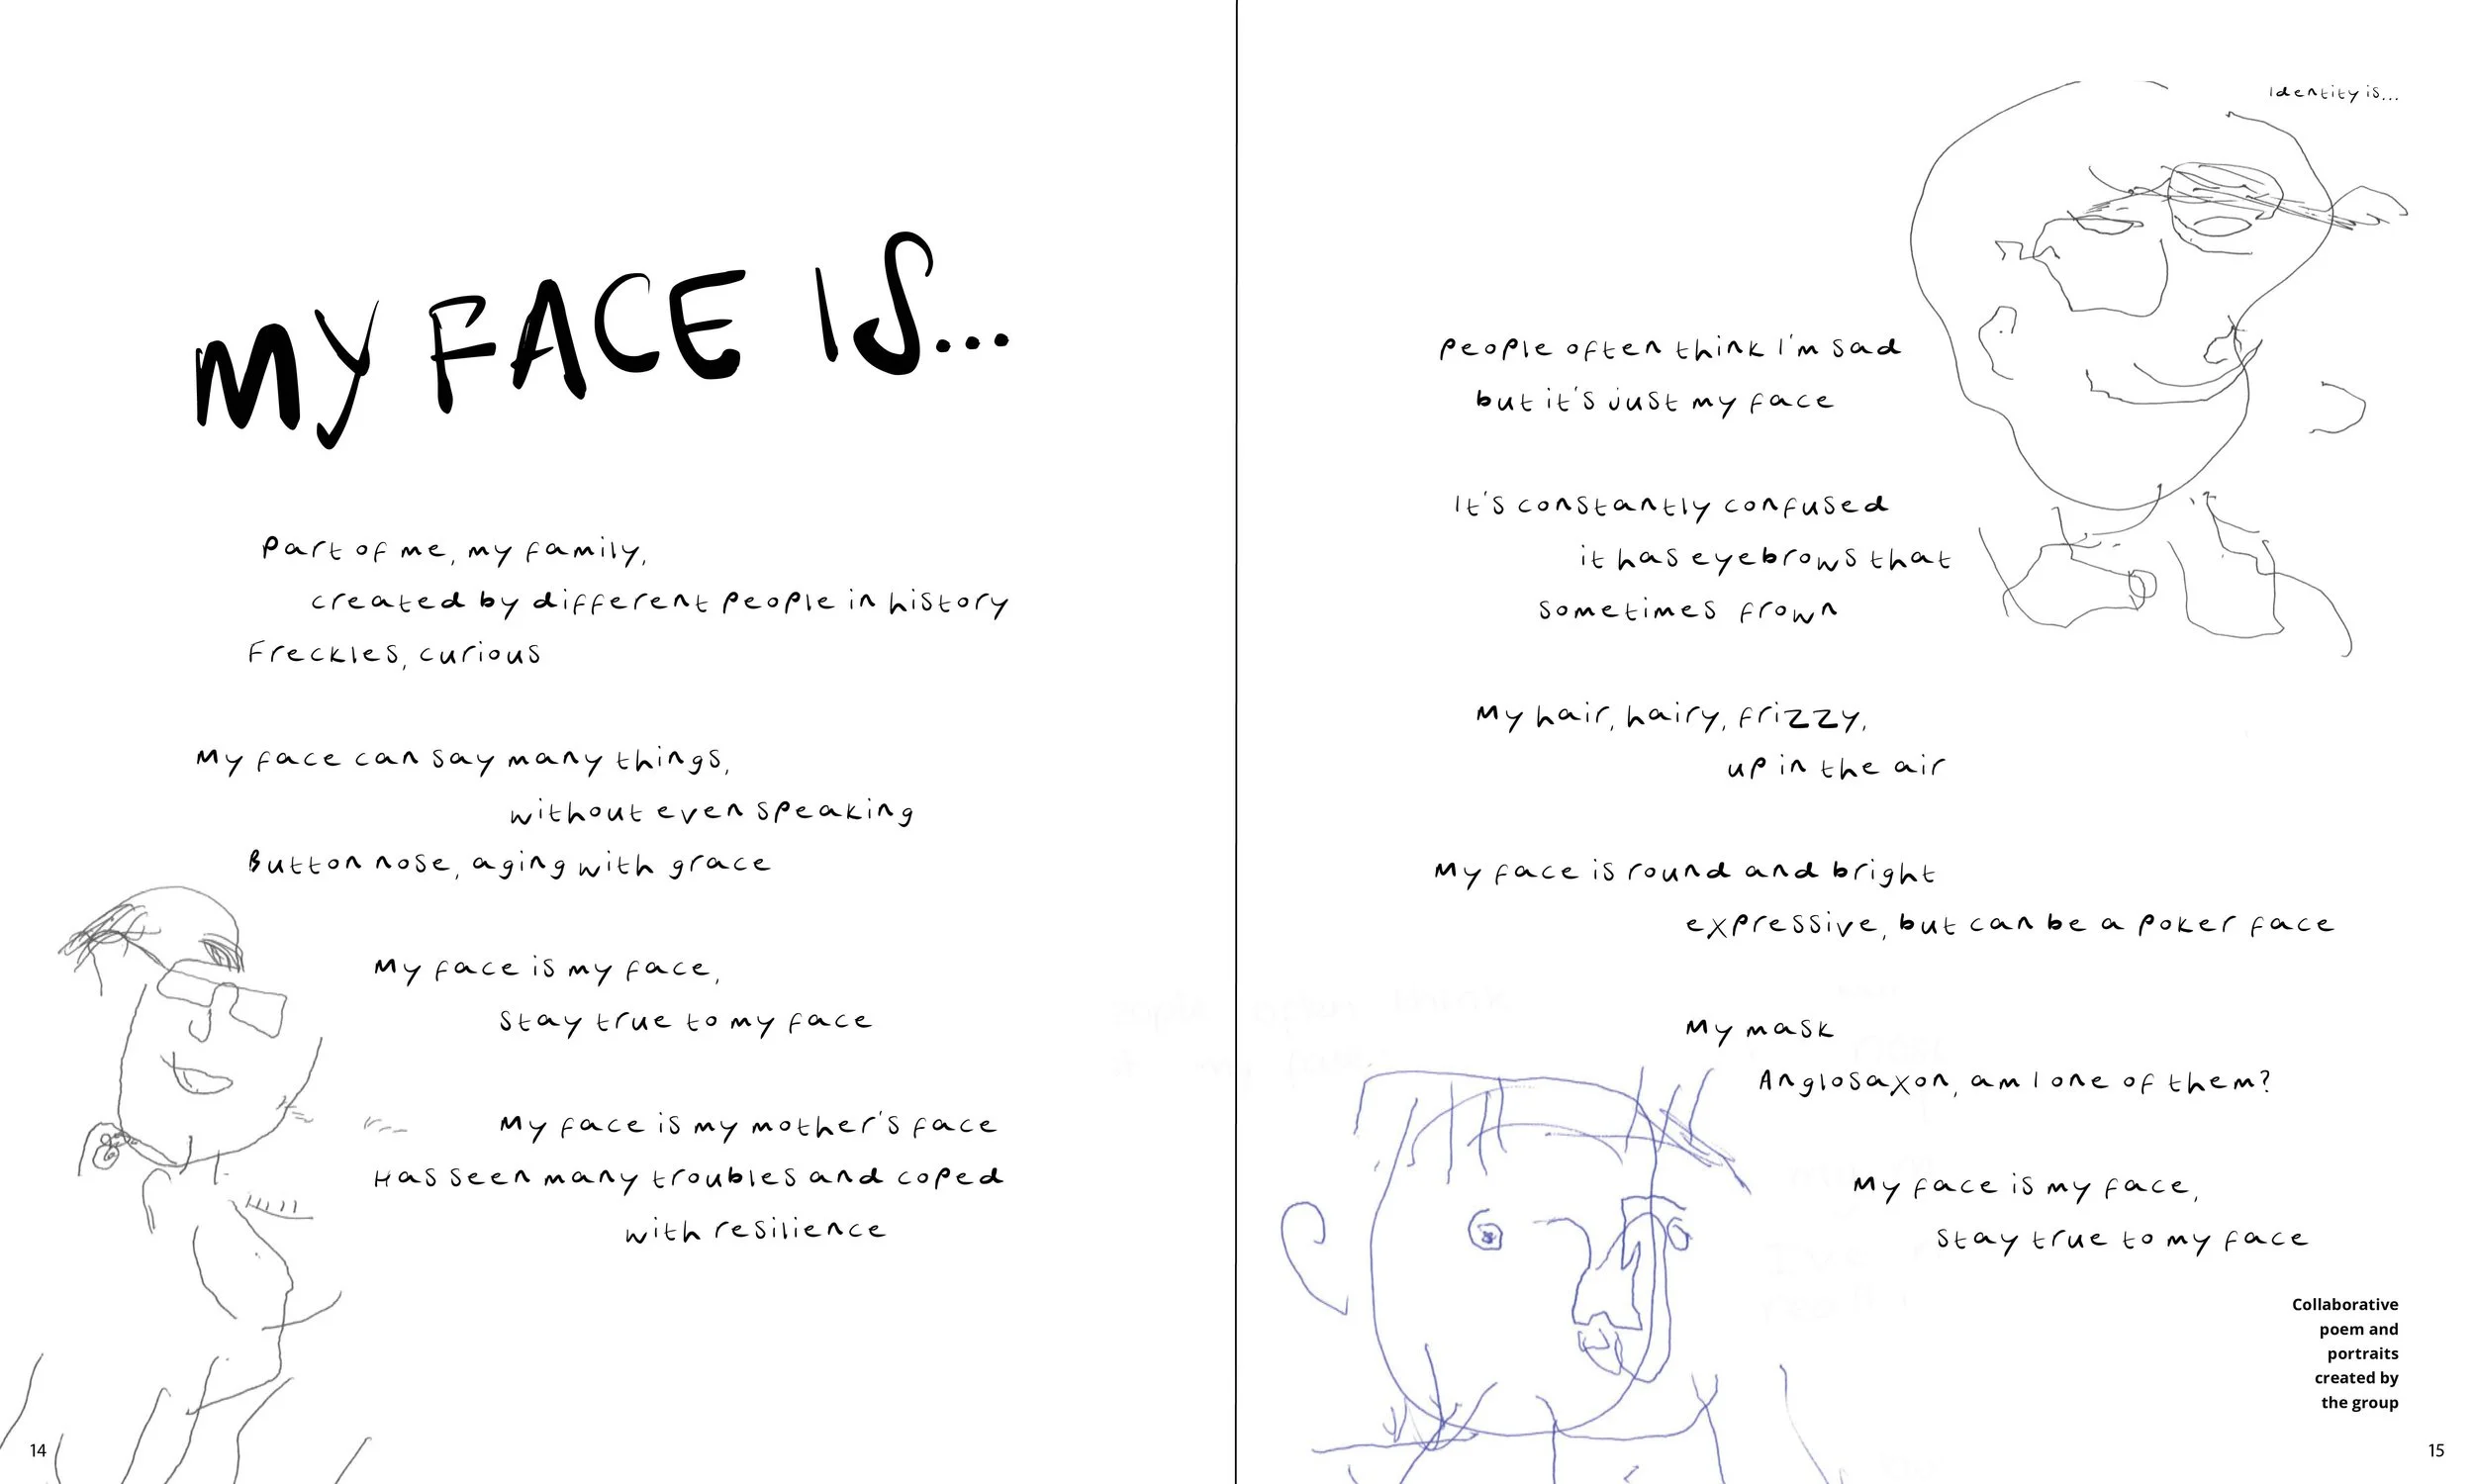 MY FACE IS...
Part of me, my family,
created by different people in history
Freckles, curious
My face can say many things,
without even speaking
Button nose, aging with grace
My face is my face,
Stay true to my face
My face is my mother's face
Has seen many troubles and coped
with resilience
14
Identity is...
People often think I'm sad
but it's just my face
It's constantly confused
it has eyebrows that
sometimes frown
My hair, hairy, frizzy,
up in the air
My face is round and bright
expressive, but can be a poker face
My mask
Anglosaxon, am I one of them?
My face is my face,
Stay true to my face
Collaborative
poem and
portraits
created by
the group
15